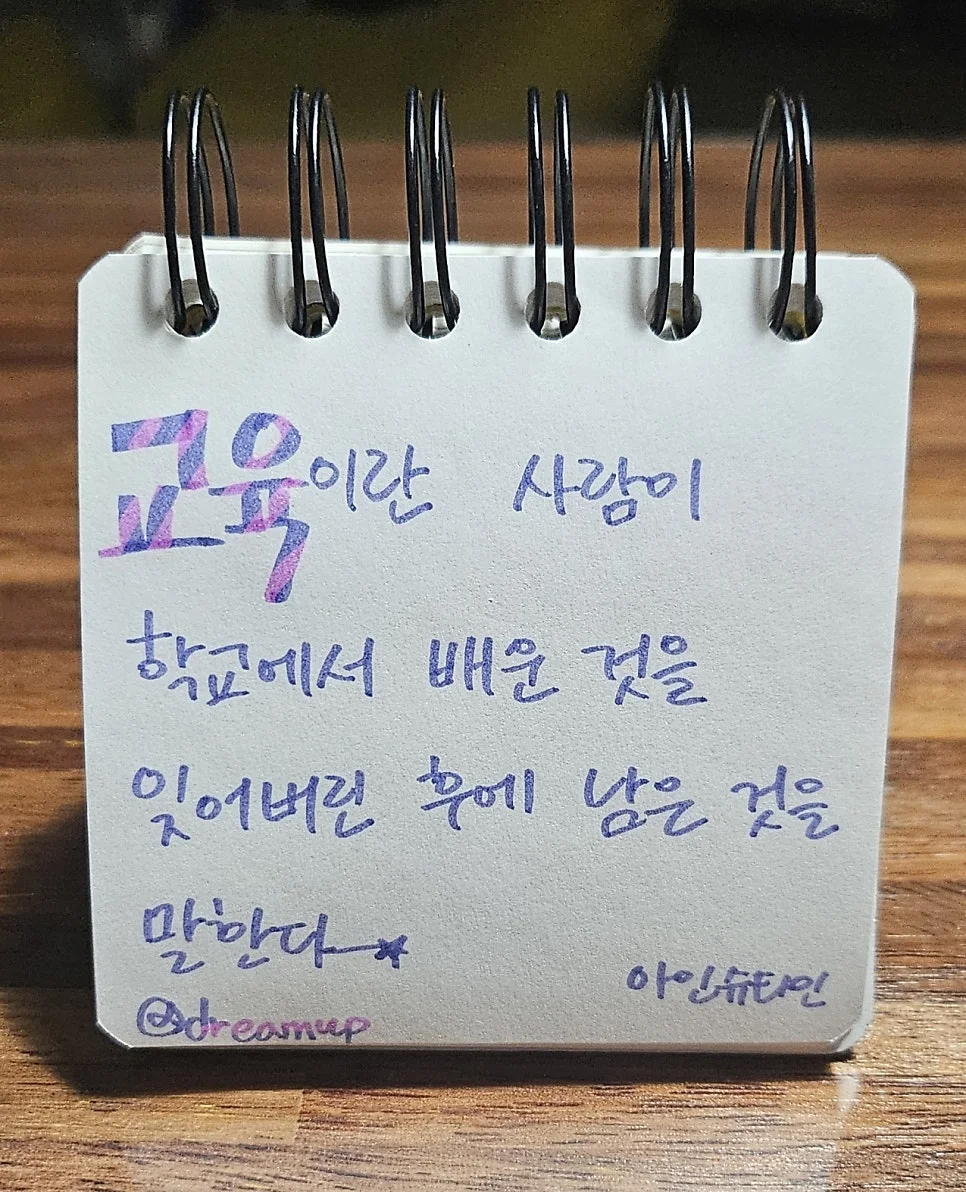 교육이란 사람이
학교에서 배운 것을
잊어버린 후에 남은 것을
말한다
아인슈타인
@dreamup